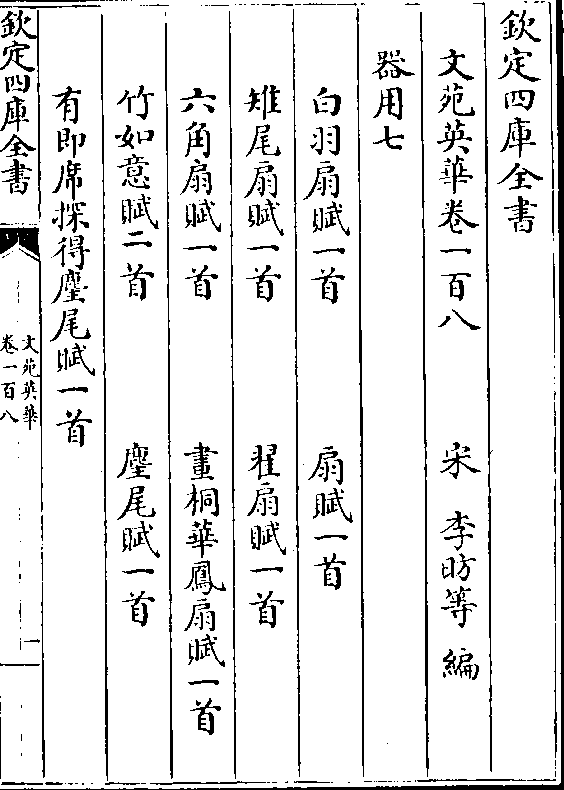 欽定四庫全書
文苑英華卷一百八
宋 李昉等 編
器用七
白羽扇賦一首 扇賦一首
雉尾扇賦一首 翟扇賦一首
六角扇賦一首 畫桐華鳳扇賦一首
竹如意賦二首 麈尾賦一首
有即席探得麈尾賦一首
欽定四庫全書
文苑英華
卷一百八
一